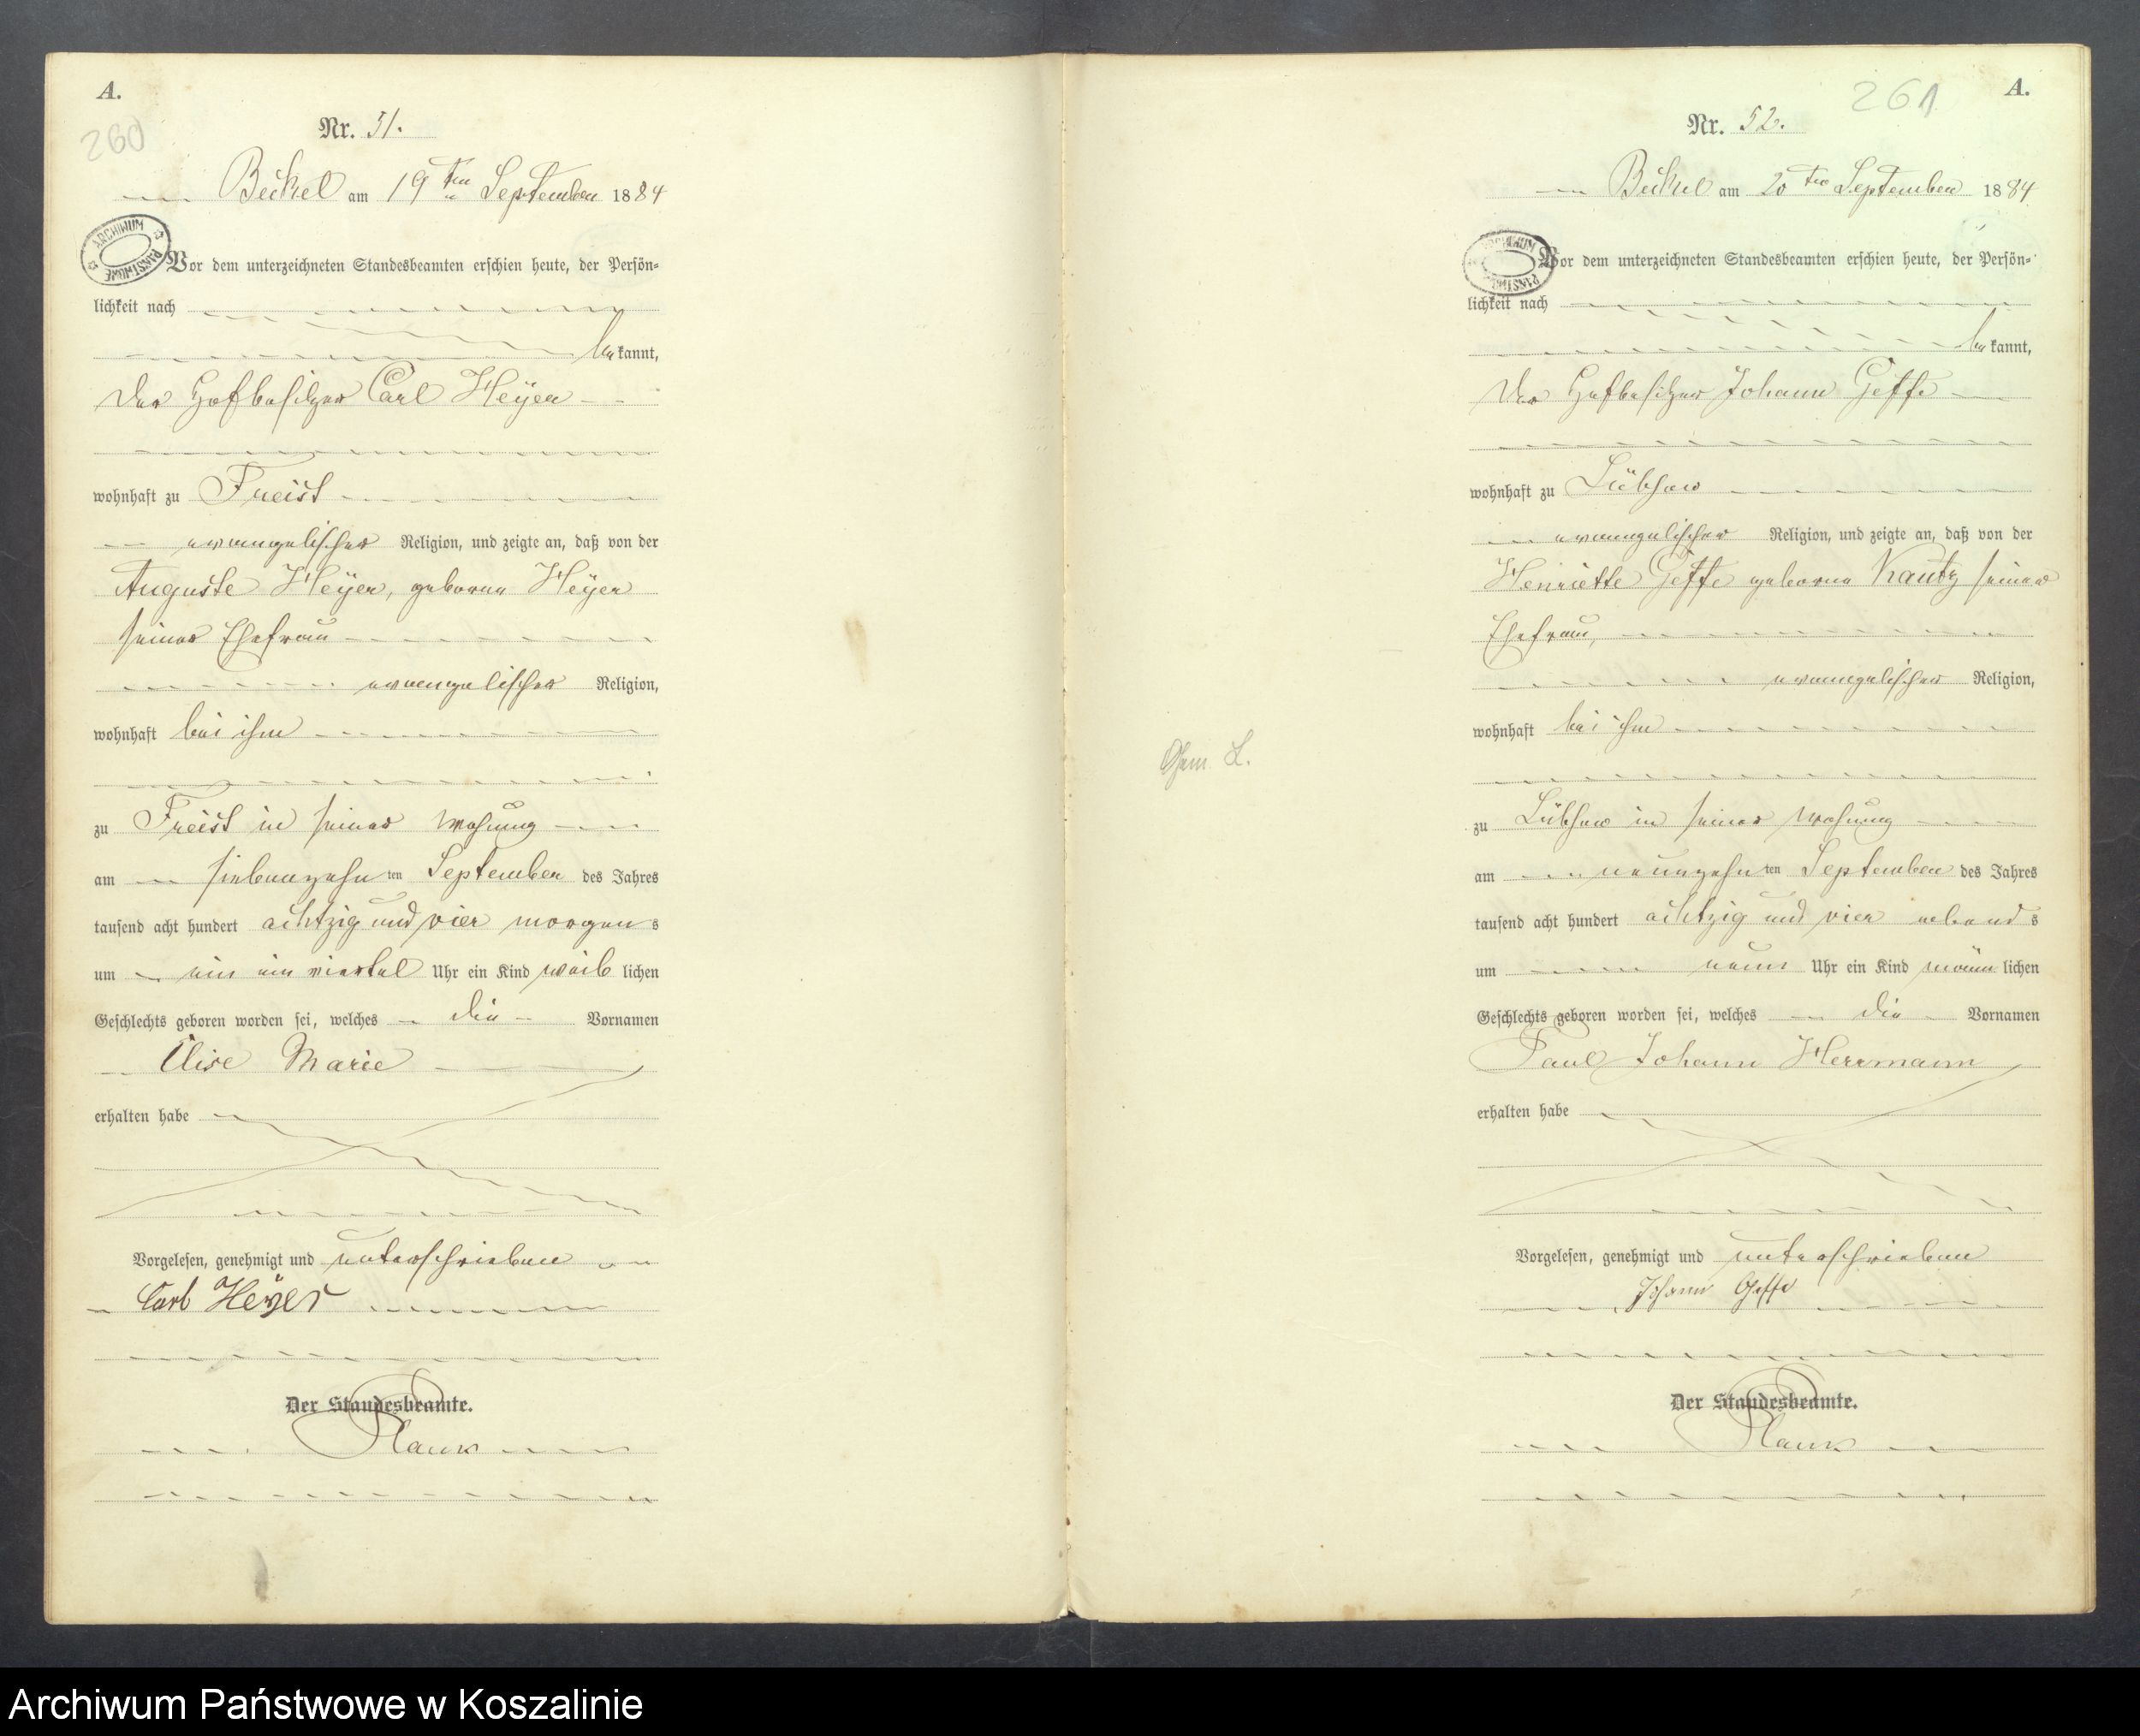 A.
260
Nr. 51.
Beckel am 19ten September 1884
ARCHIWUM PAŃSTWOWE
Vor dem unterzeichneten Standesbeamten erschien heute, der Persön=
lichkeit nach
be kannt,
der Hofbesitzer Carl Heyer
wohnhaft zu Freist
evangelischer Religion, und zeigte an, daß von der
Auguste Heyer, geborne Heyer
seiner Ehefrau
evangelischer Religion,
wohnhaft bei ihm
zu Freist in seiner Wohnung
am siebenzehn ten September des Jahres
tausend acht hundert achtzig und vier morgen s
um ein ein viertel Uhr ein Kind weib lichen
Geschlechts geboren worden sei, welches die Vornamen
Elise Marie
erhalten habe
Vorgelesen, genehmigt und unterschrieben
Carl Heyer
Der Standesbeamte.
261
A.
Nr. 52.
Beckel am 20ten September 1884
ARCHIWUM PAŃSTWOWE
Vor dem unterzeichneten Standesbeamten erschien heute, der Persön=
lichkeit nach
be kannt,
der Hofbesitzer Johann Geffe
wohnhaft zu Lübzow
evangelischer Religion, und zeigte an, daß von der
Henriette Geffe geborne Kautz seiner
Ehefrau,
evangelischer Religion,
wohnhaft bei ihm
zu Lübzow in seiner Wohnung
am neunzehn ten September des Jahres
tausend acht hundert achtzig und vier abend s
um neun Uhr ein Kind männ lichen
Geschlechts geboren worden sei, welches die Vornamen
Paul Johann Herrmann
erhalten habe
Vorgelesen, genehmigt und unterschrieben
Johann Geffe
Der Standesbeamte.
Archiwum Państwowe w Koszalinie